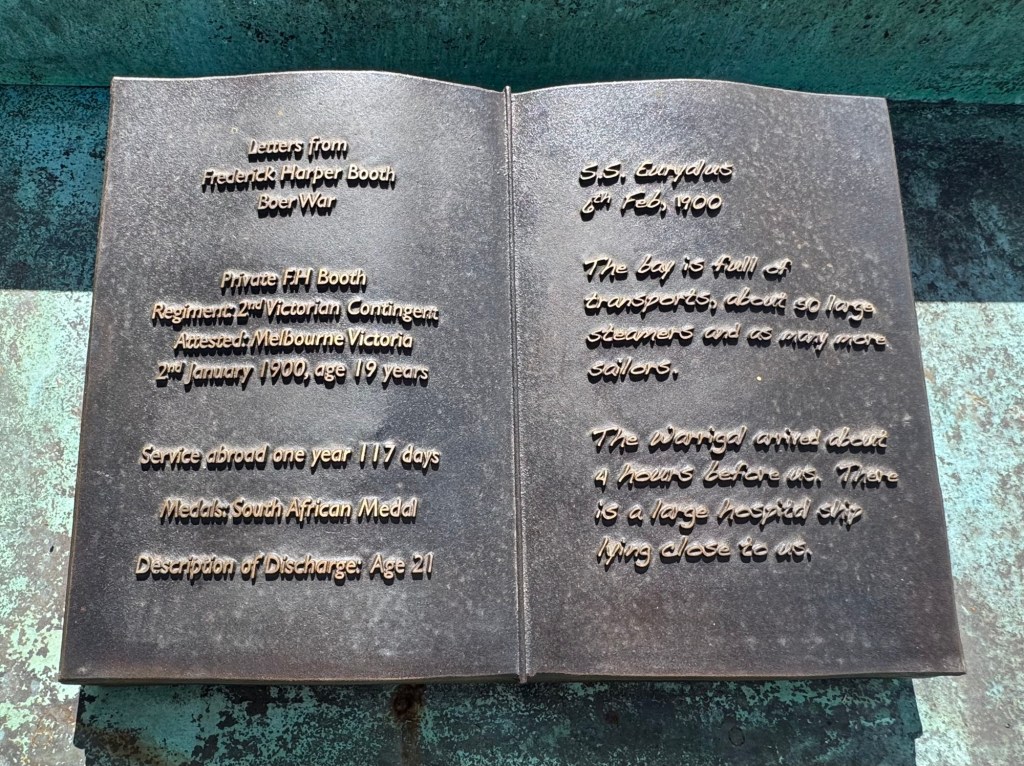 Letters from
Frederick Harper Booth
Boer War
Private F.H Booth
Regiment: 2nd Victorian Contingent
Attested: Melbourne Victoria
2nd January 1900, age 19 years
Service abroad one year 117 days
Medals: South African Medal
Description of Discharge: Age 21
S.S. Eurydus
6th Feb, 1900
The bay is full of
transports, about 50 large
steamers and as many more
sailors.
The Warrigal arrived about
4 hours before us. There
is a large hospital ship
lying close to us.